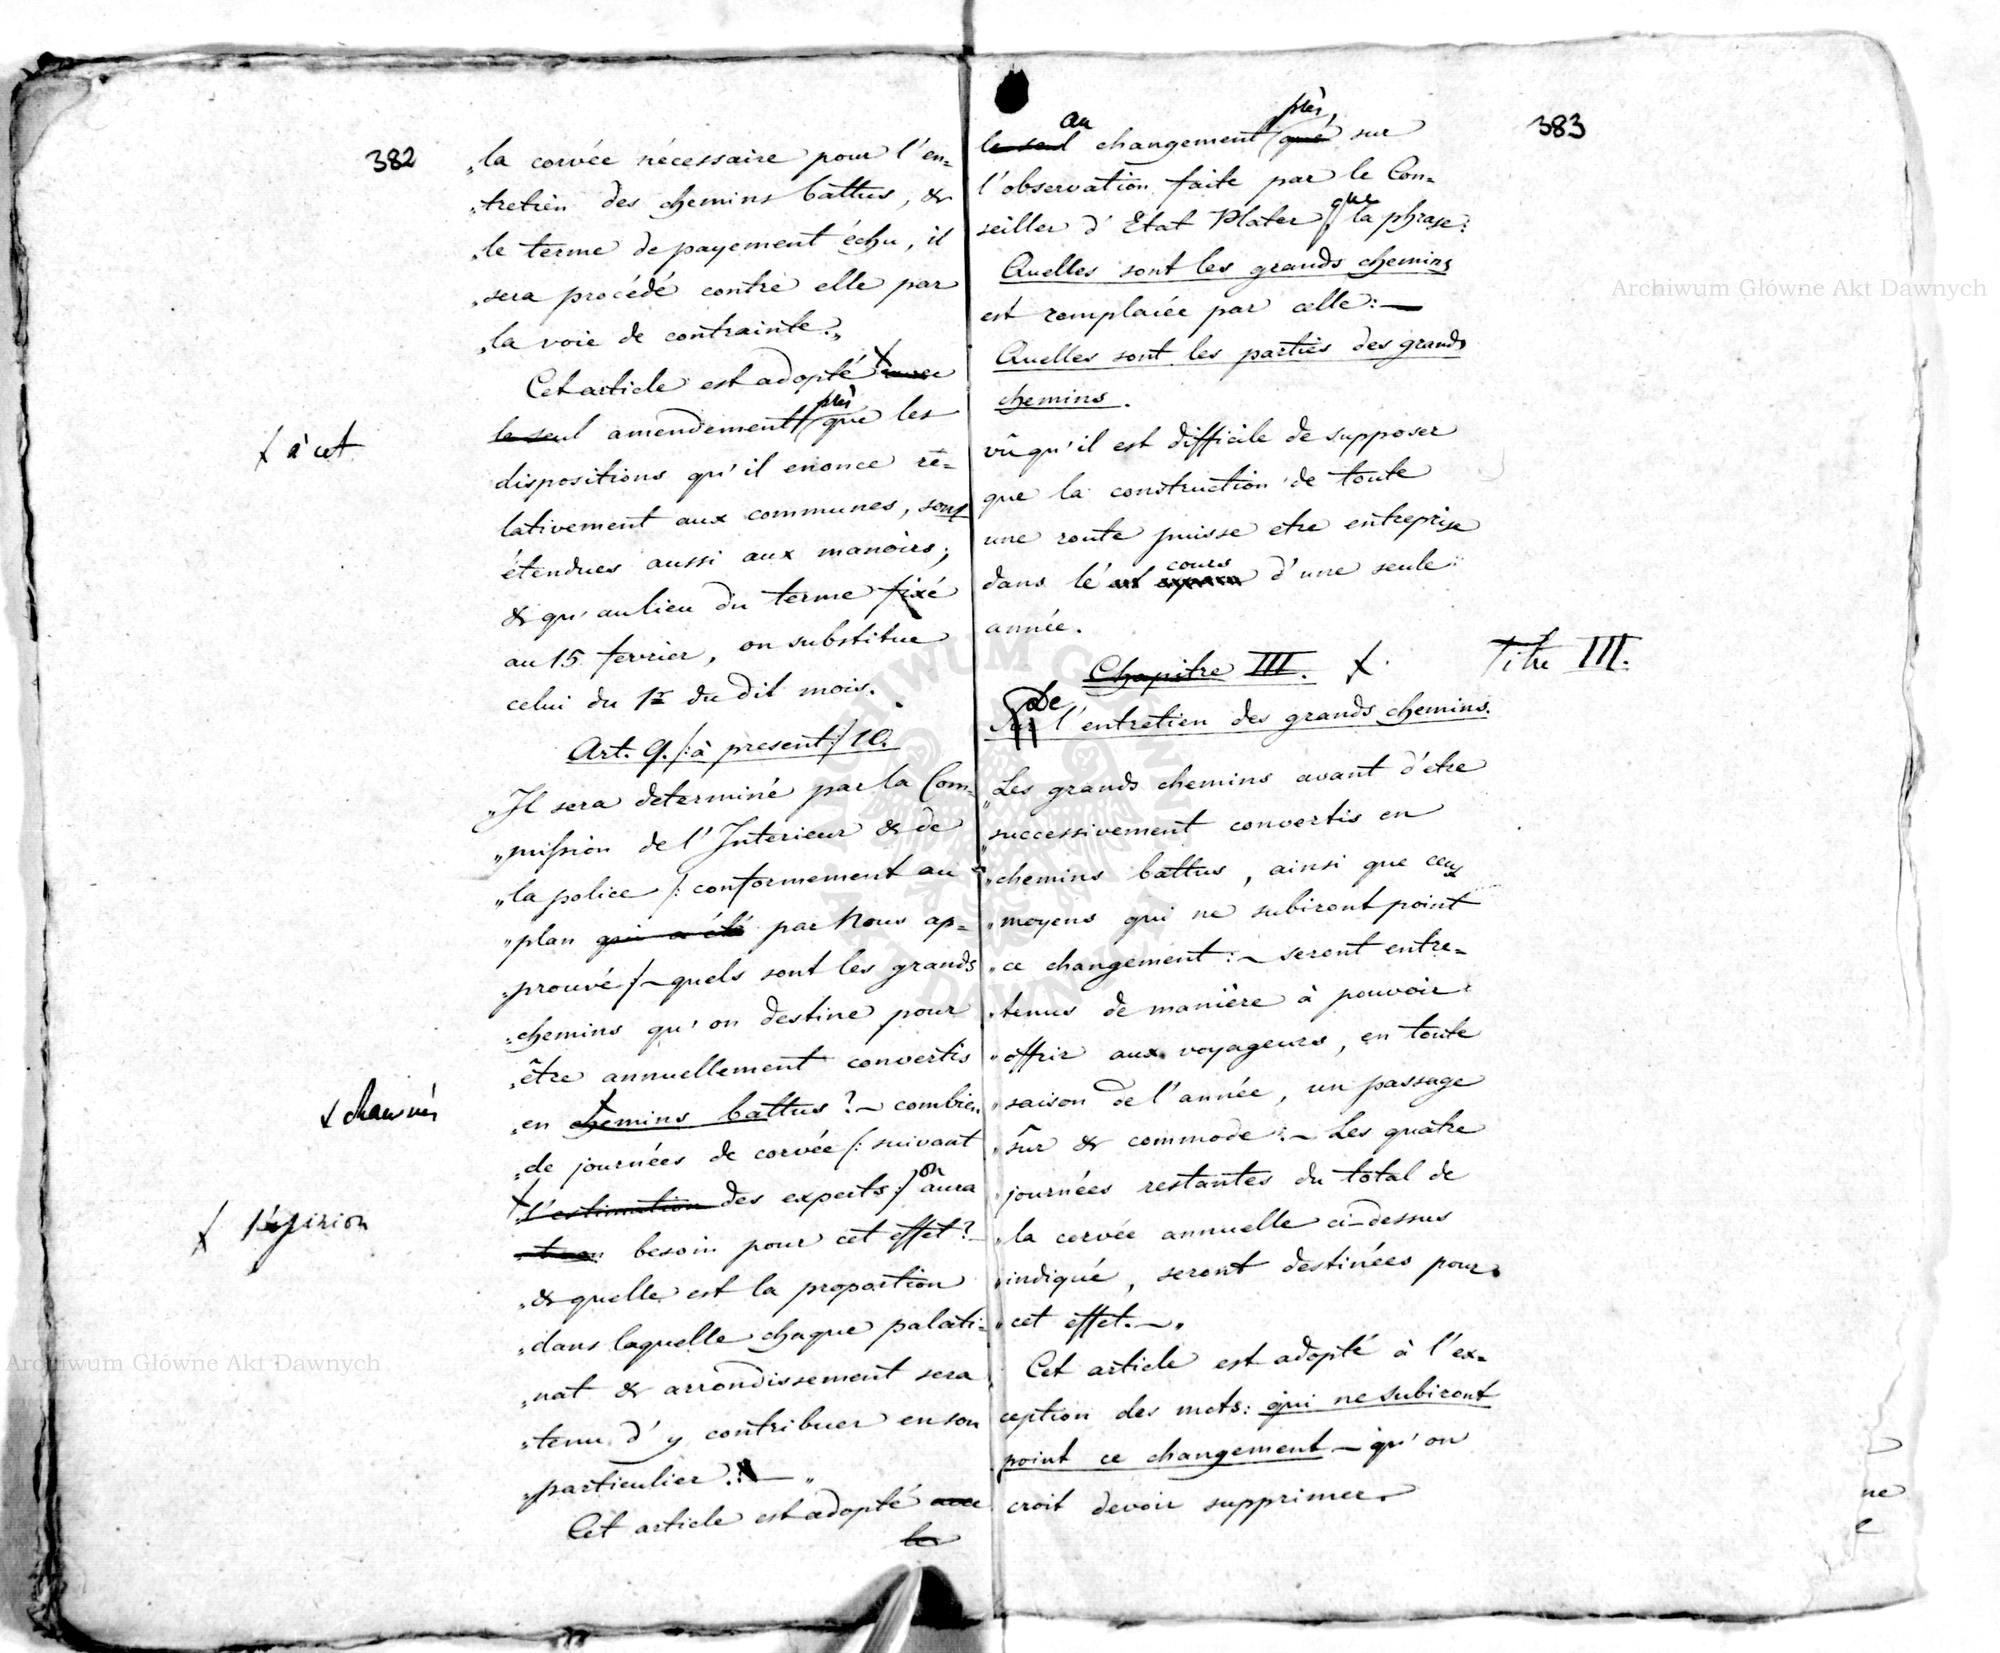 382
„la corvée nécessaire pour l'en-
„tretien des chemins battus, &
„le terme de payement échu, il
„sera procédé contre elle par
„la voie de contrainte.„
Cet article est adopté avec
à cet
le seul amendement près que les
dispositions qu'il enonce re-
lativement aux communes, sont
étendues aussi aux manoirs;
& qu'au lieu du terme fixé
au 15 fevrier, on substitue
celui du 1r du dit mois.
Art. 9. /: à present :/ 10.
„Il sera determiné par la Com-
„mission de l'Interieur & de
„la police /: conformement au
„plan qui a été par Nous ap-
„prouvé :/ quels sont les grands
„chemins qu'on destine pour
„être annuellement convertis
chaussées
„en chemins battus? - combien
„de journées de corvée /: suivant
l'opinion
„l'estimation des experts :/ on aura
„besoin pour cet effet?
„& quelle est la proportion
„dans laquelle chaque palati-
„nat & arrondissement sera
„tenu d'y contribuer en son
„particulier? — „
Cet article est adopté avec
le
383
le seul au changement près, que sur
l'observation faite par le Con-
seiller d'Etat Plater que la phrase:
Quelles sont les grands chemins
est remplacée par celle: —
Quelles sont les parties des grands
chemins.
vû qu'il est difficile de supposer
que la construction de toute
une route puisse etre entreprise
dans le cours d'une seule
année.
Chapitre III.
Titre III.
Sur De l'entretien des grands chemins.
„Les grands chemins avant d'etre
„successivement convertis en
„chemins battus, ainsi que ceux
„moyens qui ne subiront point
„ce changement: - seront entre-
„tenus de manière à pouvoir
„offrir aux voyageurs, en toute
„saison de l'année, un passage
„sûr & commode: - Les quatre
„journées restantes du total de
„la corvée annuelle ci-dessus
„indiqué, seront destinées pour
„cet effet. - „
Cet article est adopté à l'ex-
ception des mots: qui ne subiront
point ce changement - qu'on
croit devoir supprimer.
ne
Archiwum Główne Akt Dawnych
Archiwum Główne Akt Dawnych
ARCHIWUM GŁÓWNE AKT DAWNYCH